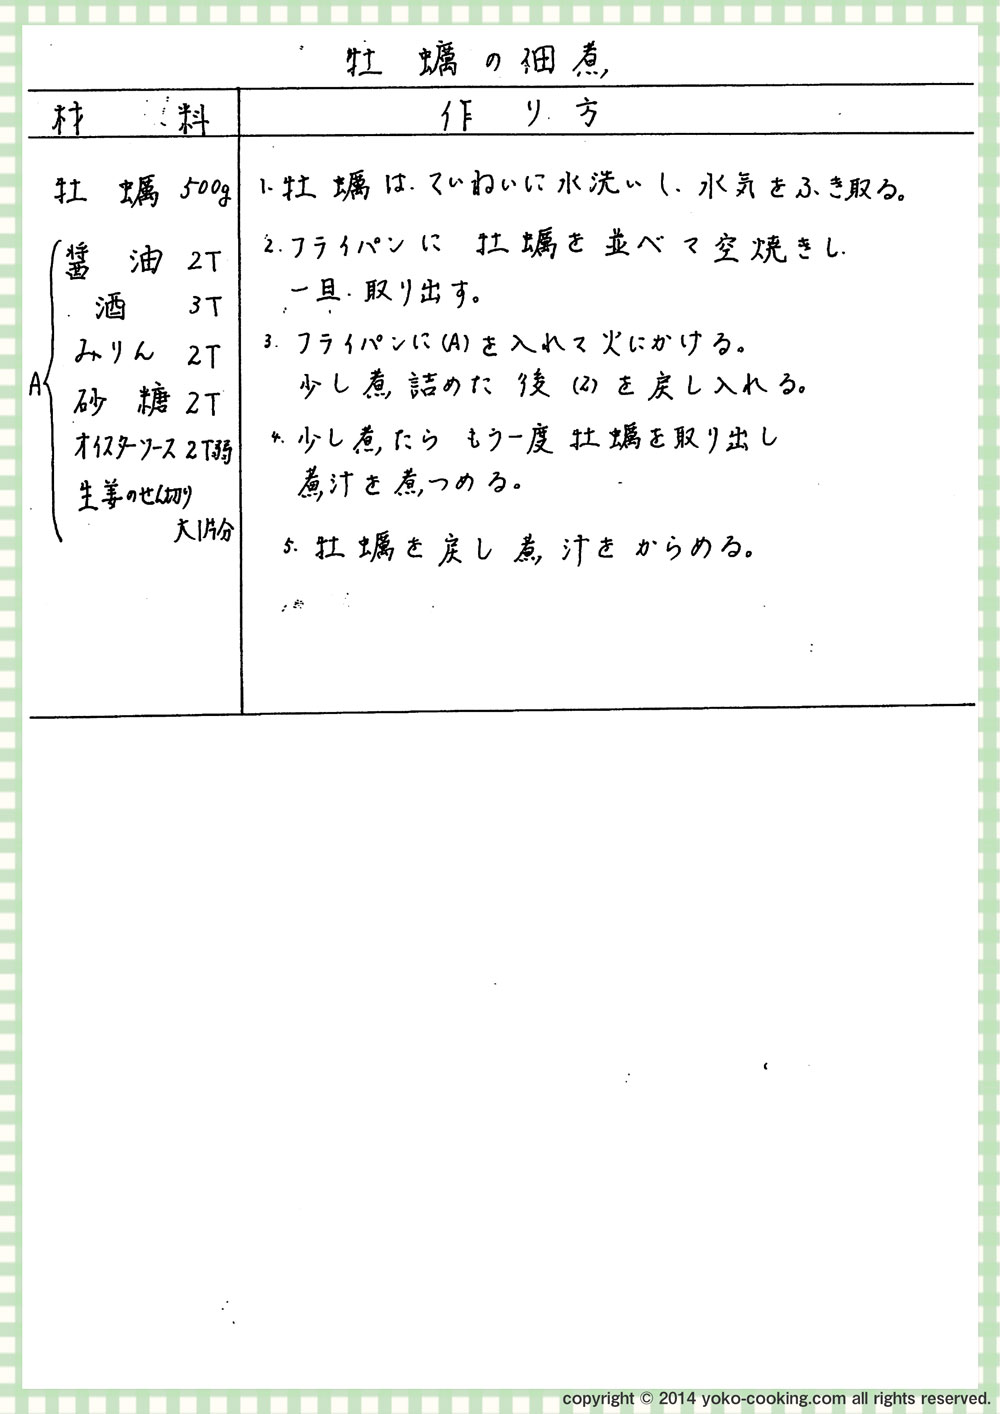 牡蠣の佃煮
材料
作り方
牡蠣 500g
A
醤油 2T
酒 3T
みりん 2T
砂糖 2T
オイスターソース 2T弱
生姜のせん切り
大1片分
1. 牡蠣は、ていねいに水洗いし、水気をふき取る。
2. フライパンに 牡蠣を並べて空焼きし、
一旦、取り出す。
3. フライパンに(A)を入れて火にかける。
少し煮詰めた後(2)を戻し入れる。
4. 少し煮たら もう一度 牡蠣を取り出し
煮汁を煮つめる。
5. 牡蠣を戻し 煮汁をからめる。
copyright © 2014 yoko-cooking.com all rights reserved.